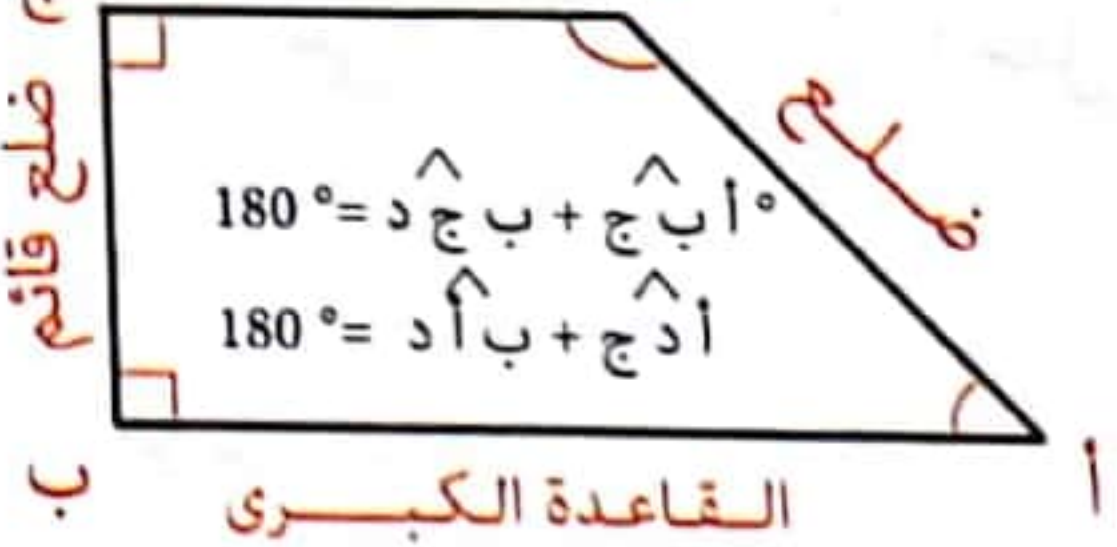 ضلع
ضلع قائم
° أ ب̂ ج + ب ج̂ د =° 180
أ د̂ ج + ب أ̂ د =° 180
ب
القاعدة الكبرى
أ